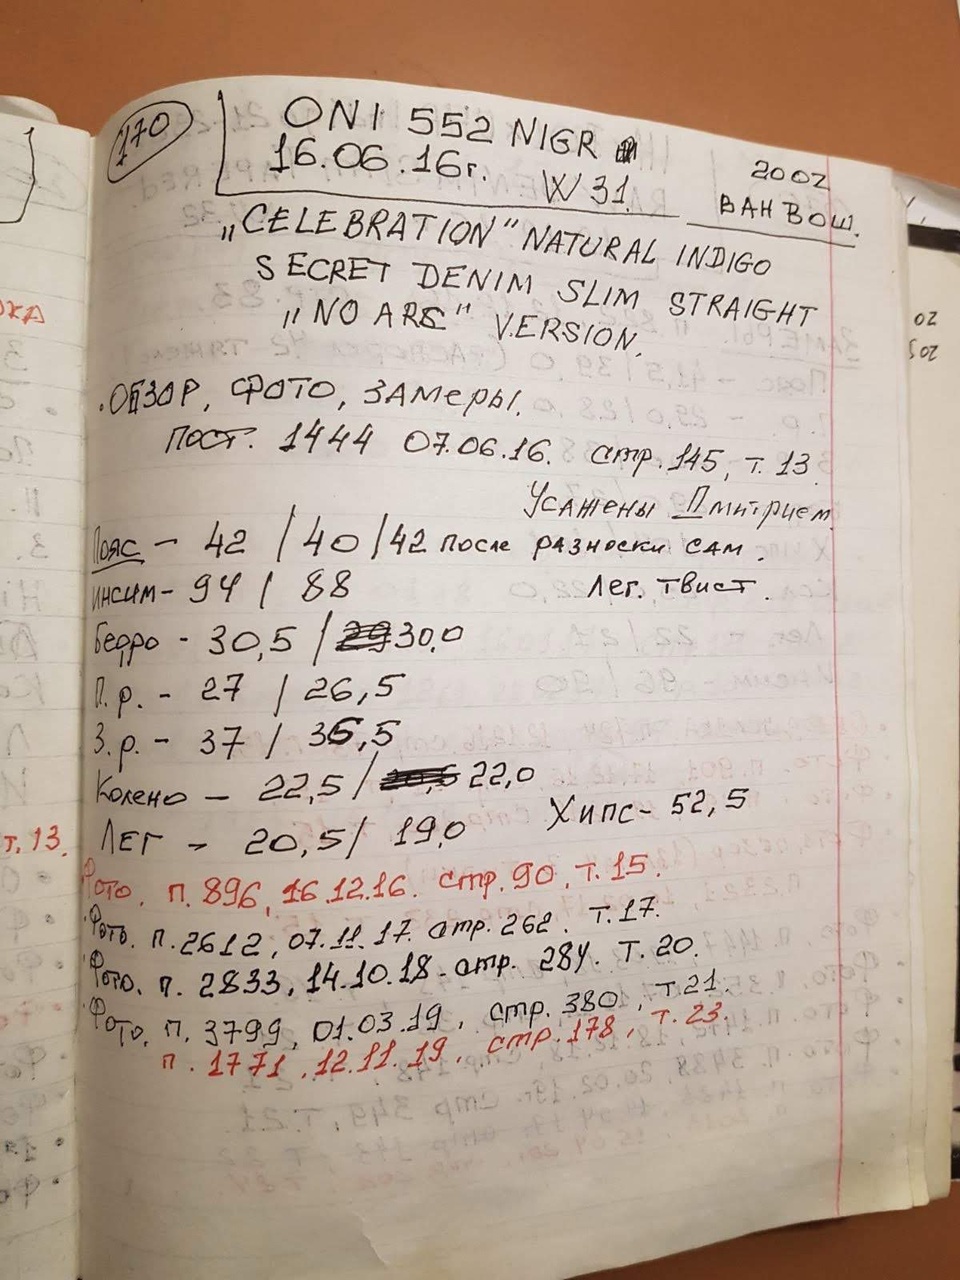 170
ONI 552 NIGR
16.06.16г. W 31.
20 OZ
ВАН ВОШ.
„CELEBRATION" NATURAL INDIGO
SECRET DENIM SLIM STRAIGHT
„NO ARC" VERSION.
. ОБЗОР, ФОТО, ЗАМЕРЫ.
ПОСТ. 1444 07.06.16. стр. 145, т. 13
Усажены Дмитрием
Пояс - 42 / 40 / 42 после разноски сам.
Инсим - 94 / 88 Лег. твист.
Бедро - 30,5 / 30,0
П.р. - 27 / 26,5
З.р. - 37 / 36,5
Колено - 22,5 / 22,0
Хипс - 52,5
ЛЕГ - 20,5 / 19,0
Фото. п. 896, 16.12.16. стр. 90, т. 15.
Фото. п. 2612, 07.11.17. стр. 262. т. 17.
Фото. п. 2833, 14.10.18. стр. 284. т. 20.
Фото. п. 3799, 01.03.19, стр. 380, т. 21.
п. 1771, 12.11.19, стр. 178, т. 23.
т. 13.